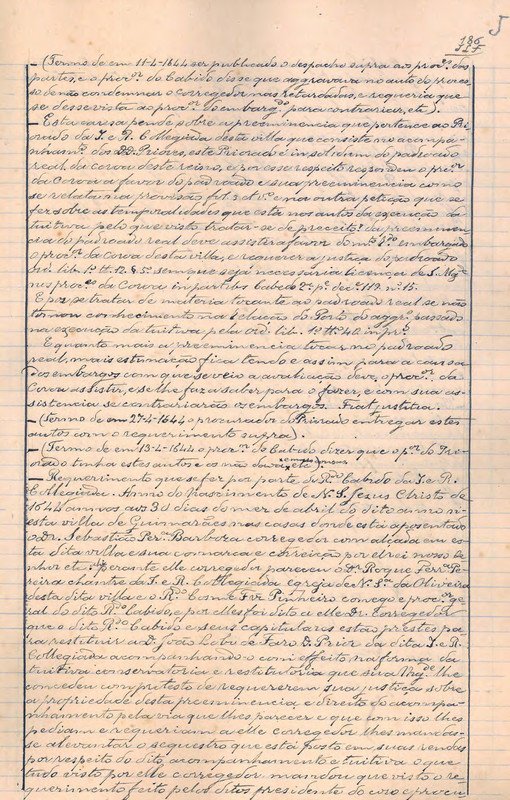 5
186
- (Termo de em 11-4-1644 ser publicado o despacho supra aos procres das
partes, e o procr do Cabido disse que aggravava no auto do proces-
so de não condemnar o corregedor nas retardadas, e requeria que
se desse vista ao procr dos embargdos para contrariar, etc).
- Esta causa pende sobre a preeminencia que pertence ao Pri-
orado da I. e R. Collegiada desta villa que consiste no acompa-
nhamto dos DD. Priores, este Priorado é in solidum do padroado
real da coroa deste reino, e por esse respeito respondeu o procr
da Coroa a favor do padroado e sua preeminencia como
se relata na provisão fol. 2 et vo e na outra petição que se
fez sobre as temporalidades que está nos autos da execução da
tuitiva pelo que visto tratar-se de preceito da preeminen-
cia do padroado real deve assistir a favor do mmo embargado
o procr da Coroa desta villa, e requerer a justiça do padroado
Ord. lib. 1º tt. 12 § 5º sem que seja necessaria licença de S. Mge
nos procres da Coroa in partibus Cabedo 2ª p. dec. 112 nº 15.
E por se tratar de materia tocante ao padroado real se não
tomou conhecimento na Relação do Porto do aggro passado
na execução da tuitiva pela Ord. lib. 1º tt. 40 in pr.
E quanto mais a preeminencia tocar no padroado
real, mais estimação fica tendo e assim para a causa
dos embargos com que se veio a avaliação deve o procr da
Coroa assistir, e se lhe faça saber para o fazer, e com sua as-
sistencia se contrariarão os embargos. Fiat justitia.
- (Termo de em 27-4-1644 o procurador do Priorado entregar estes
autos com o requerimento supra).
- (Termo de em 13-4-1644 o procr do Cabido dizer que o pr do Prio-
rado tinha estes autos e os não dava, etc)
- Requerimento que se fez por parte do Rdo Cabido da I. e R.
Collegiada. Anno do Nascimento de N. S. Jesus Christo de
1644 annos aos 3 dias do mez de abril do dito anno n'-
esta villa de Guimarães nas casas donde está aposentado
o Dr. Sebastião Perª Barboza corregedor com alçada em es-
ta dita villa e sua comarca e correição por el rei nosso Se-
nhor etc: Perante elle corregedor pareceu o Dr Roque Ferrª Pe-
reira chantre da I. e R. Collegiada egreja de N. Srª da Oliveira
desta dita villa e o Rdo Pinheiro conego e procr ge-
ral do dito Rdo Cabido, e por elles foi dito a elle Dr. Corregedor
que o dito Rdo Cabido e seus capitulares estão prestes pa-
ra restituir a D. João Lobo de Faro D. Prior da dita I. e R.
Collegiada acompanhando o com effeito na forma da
tuitiva conservatoria e restitutoria que sua Mgde lhe
concedeu com protesto de requererem sua justiça sobre
a propriedade desta preeminencia e direito do acompa-
nhamento pela via que lhes parecer e que com isso lhes
pediam e requeriam a elle corregedor lhes mandas-
se alevantar o sequestro que está posto em suas rendas
por respeito do dito, acompanhamento e tuitiva o que
tudo visto por elle corregedor mandou que visto o re-
querimento feito pelos ditos presidente do coro e procu